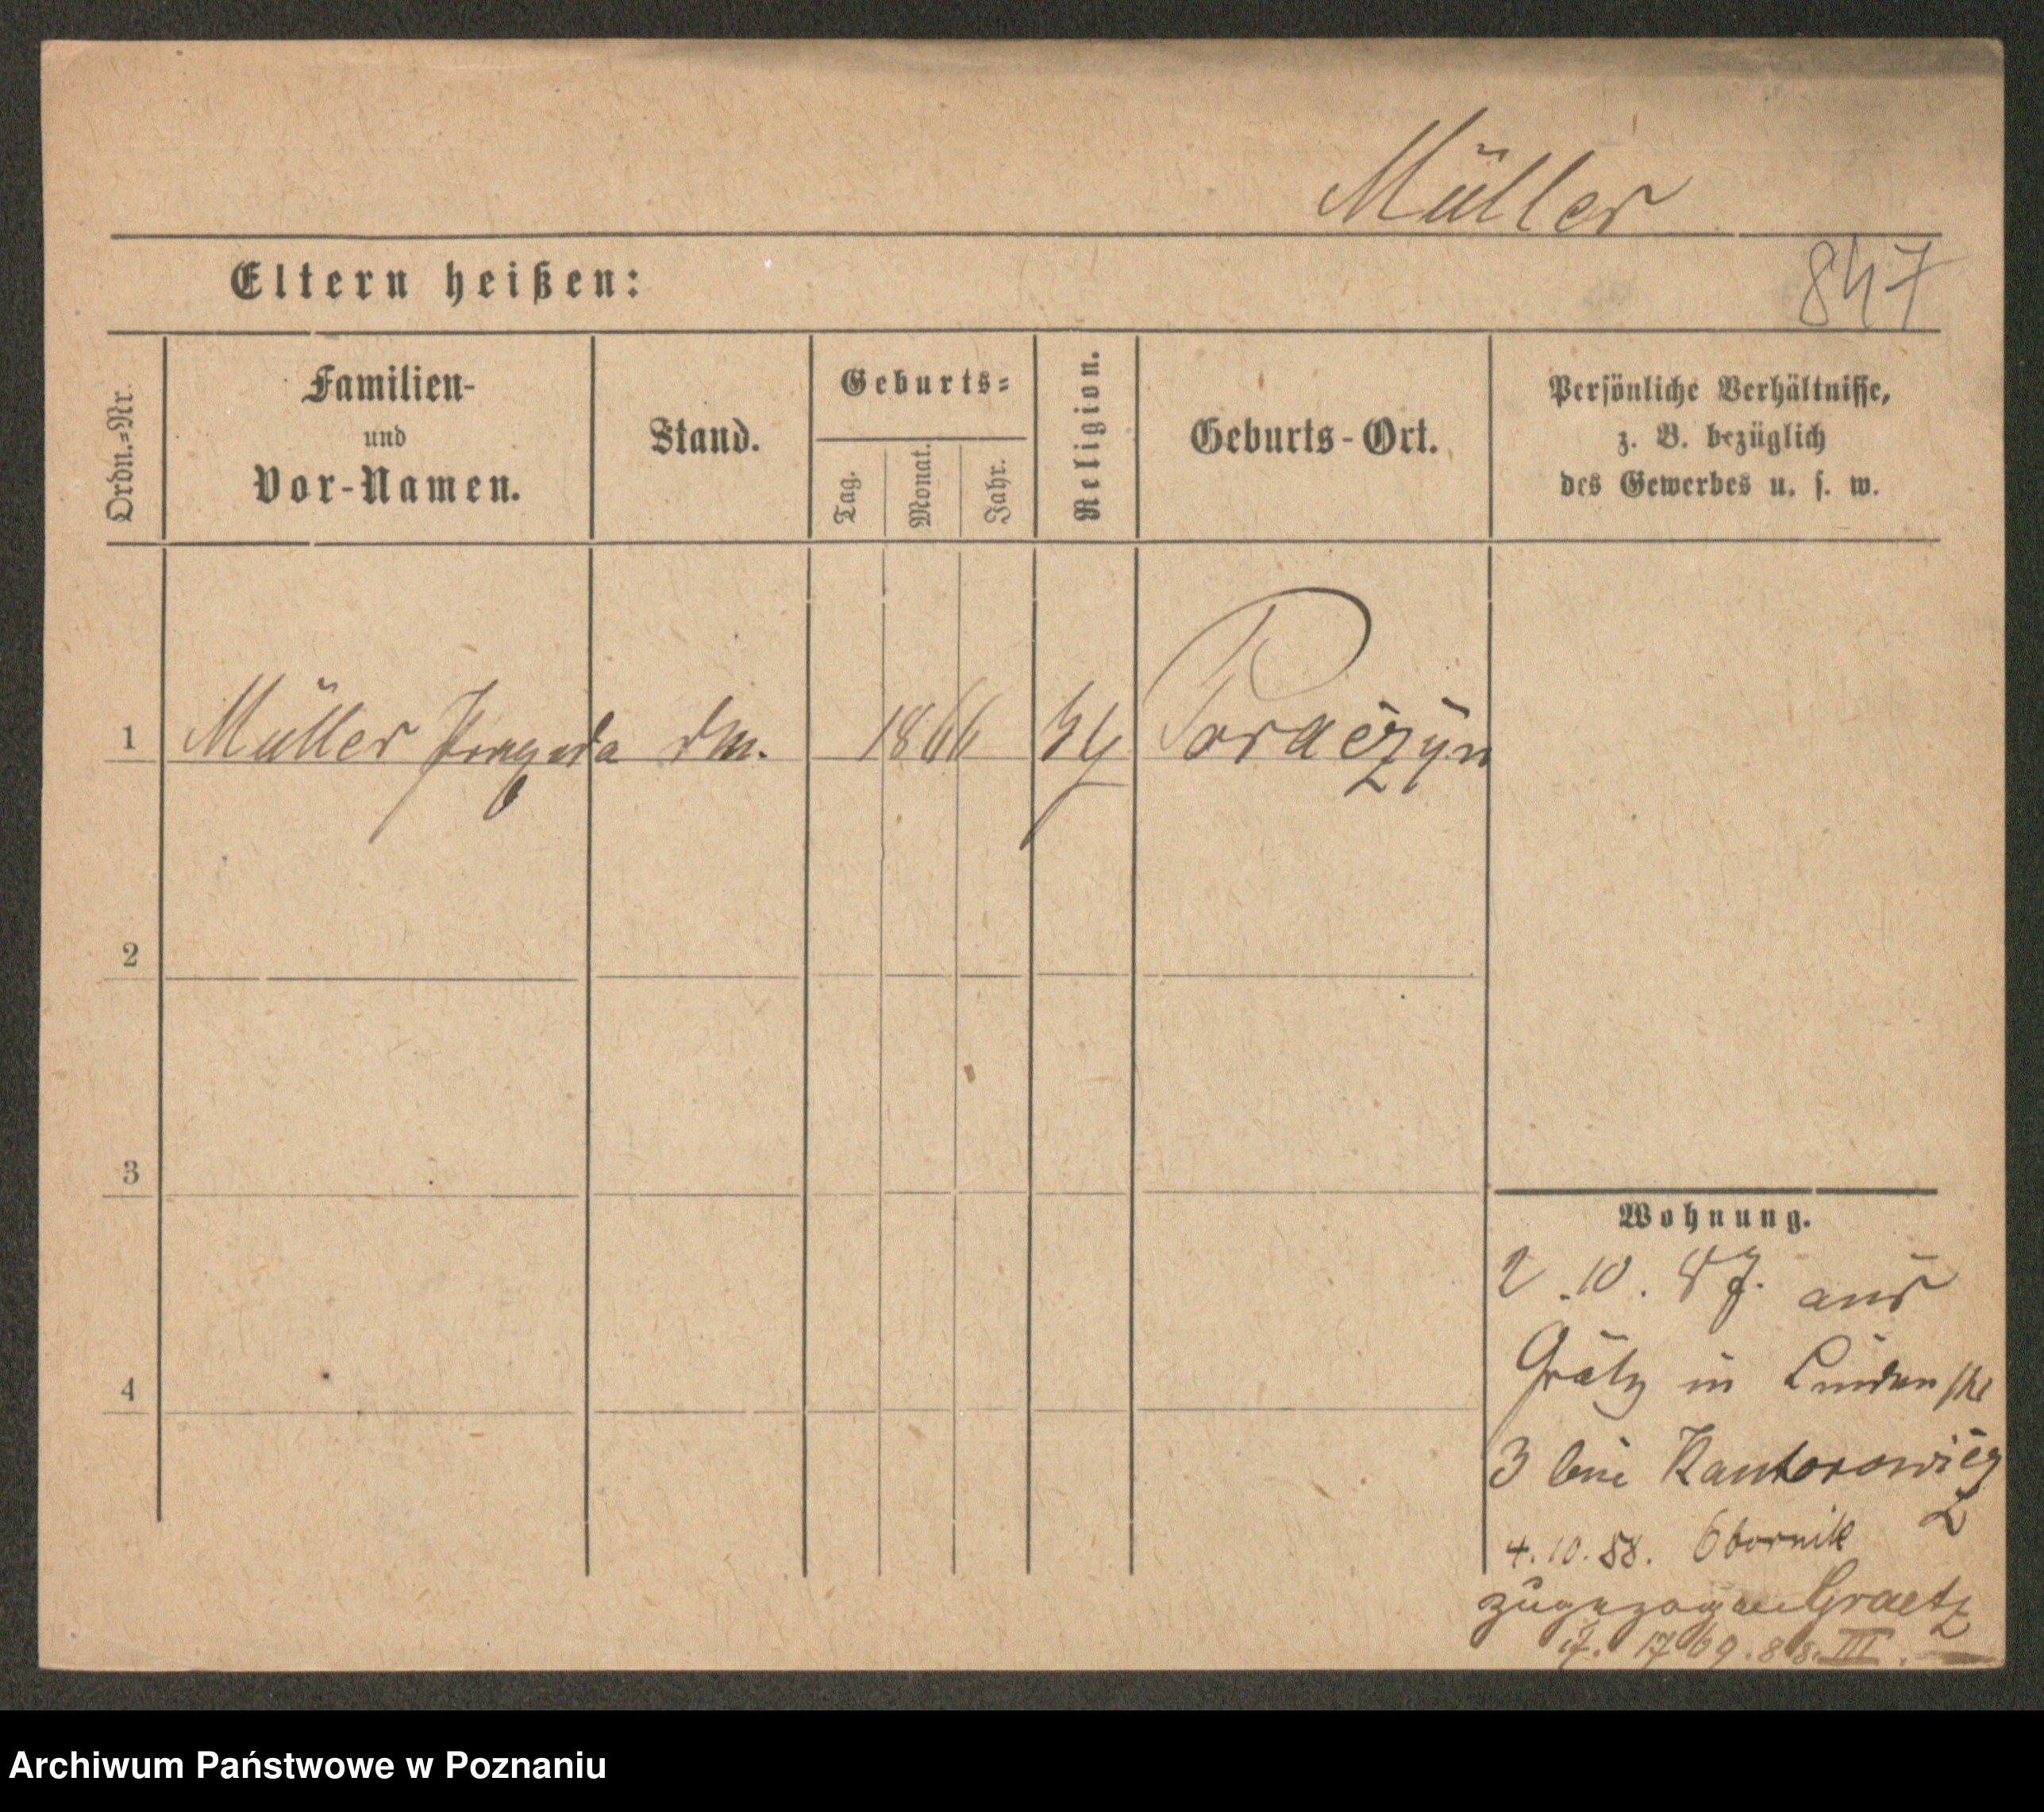 Müller
847
Eltern heißen:
Ordn.=Nr.
Familien-
und
Vor-Namen.
Stand.
Geburts=
Tag.
Monat.
Jahr.
Religion.
Geburts-Ort.
Persönliche Verhältnisse,
z. B. bezüglich
des Gewerbes u. s. w.
1 Müller dm. 1866 Poraczyn
2
3
4
Wohnung.
2.10.87. aus
Grätz in Lindenstr
3 bei Kantorowicz
4.10.88. Obornik
zugezogen Graetz
III.
Archiwum Państwowe w Poznaniu